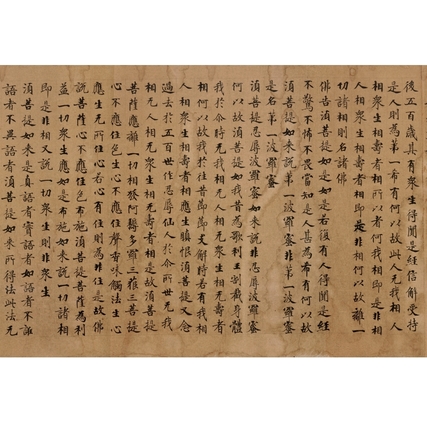 後五百歲其有衆生得聞是經信解受持
是人則為第一希有何以故此人无我相人
相衆生相壽者相所以者何我相即是非相
人相衆生相壽者相即是非相何以故離一
切諸相則名諸佛
佛告須菩提如是如是若復有人得聞是經
不驚不怖不畏當知是人甚為希有何以故
須菩提如來說第一波羅蜜非第一波羅蜜
是名第一波羅蜜
須菩提忍辱波羅蜜如來說非忍辱波羅蜜
何以故須菩提如我昔為歌利王割截身體
我於尒時无我相无人相无衆生相无壽者
相何以故我於往昔節節支解時若有我相
人相衆生相壽者相應生瞋恨須菩提又念
過去於五百世作忍辱仙人於尒所世无我
相无人相无衆生相无壽者相是故須菩提
菩薩應離一切相發阿耨多羅三藐三菩提
心不應住色生心不應住聲香味觸法生心
應生无所住心若心有住則為非住是故佛
說菩薩心不應住色布施須菩提菩薩為利
益一切衆生應如是布施如來說一切諸相
即是非相又說一切衆生則非衆生
須菩提如來是真語者實語者如語者不誑
語者不異語者須菩提如來所得法此法无